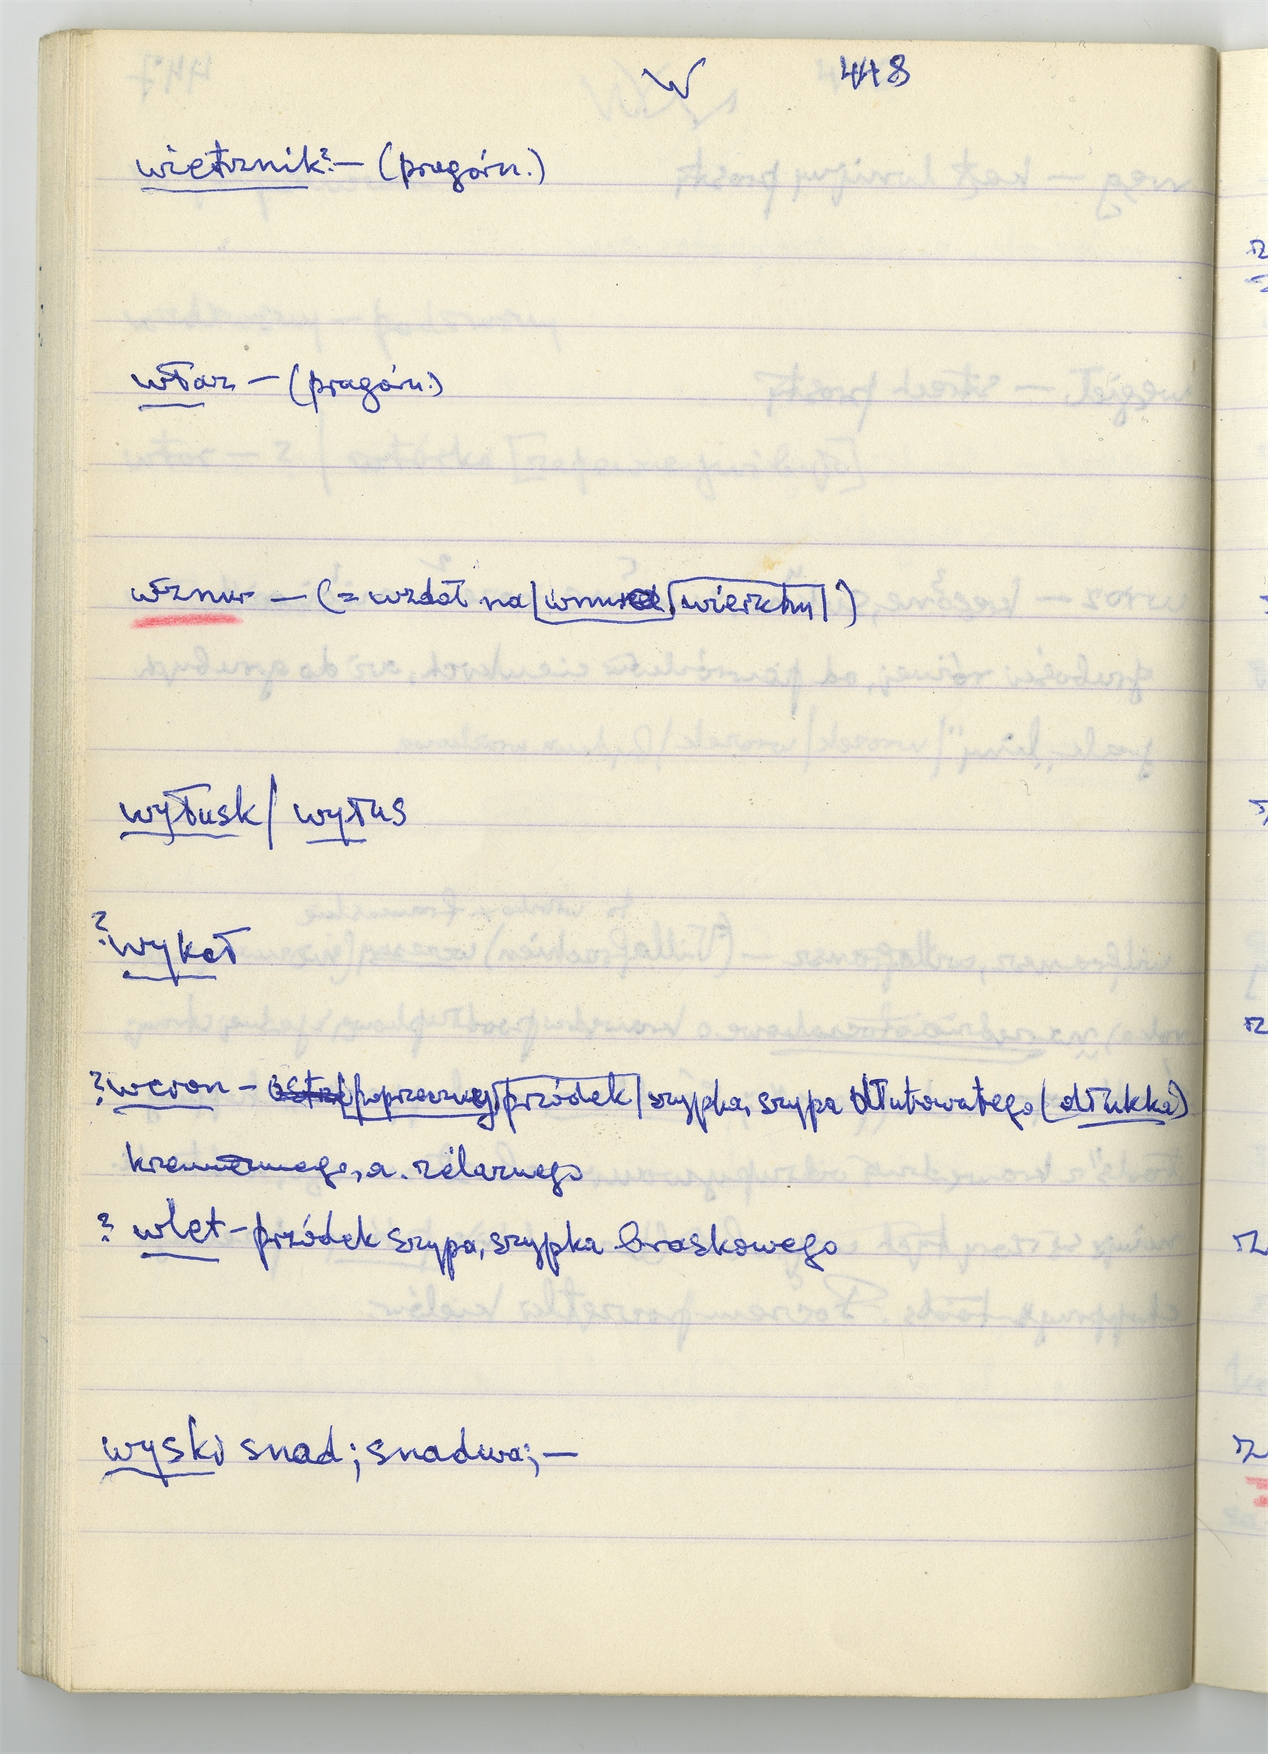 W 448
wietrznik? — (pragórn.)
właz — (pragórn.)
wznur — (= wzdół na | wnurca | wierzchu | )
wyłusk / wyłus
? wykoł
? wcion — poprzecznej | przódek | szypka, szypa dłutowatego (dłukka)
krzemiennego, a. żelaznego
? wlet — przódek szypa, szypka braskowego
wyski snad; snadwa; —